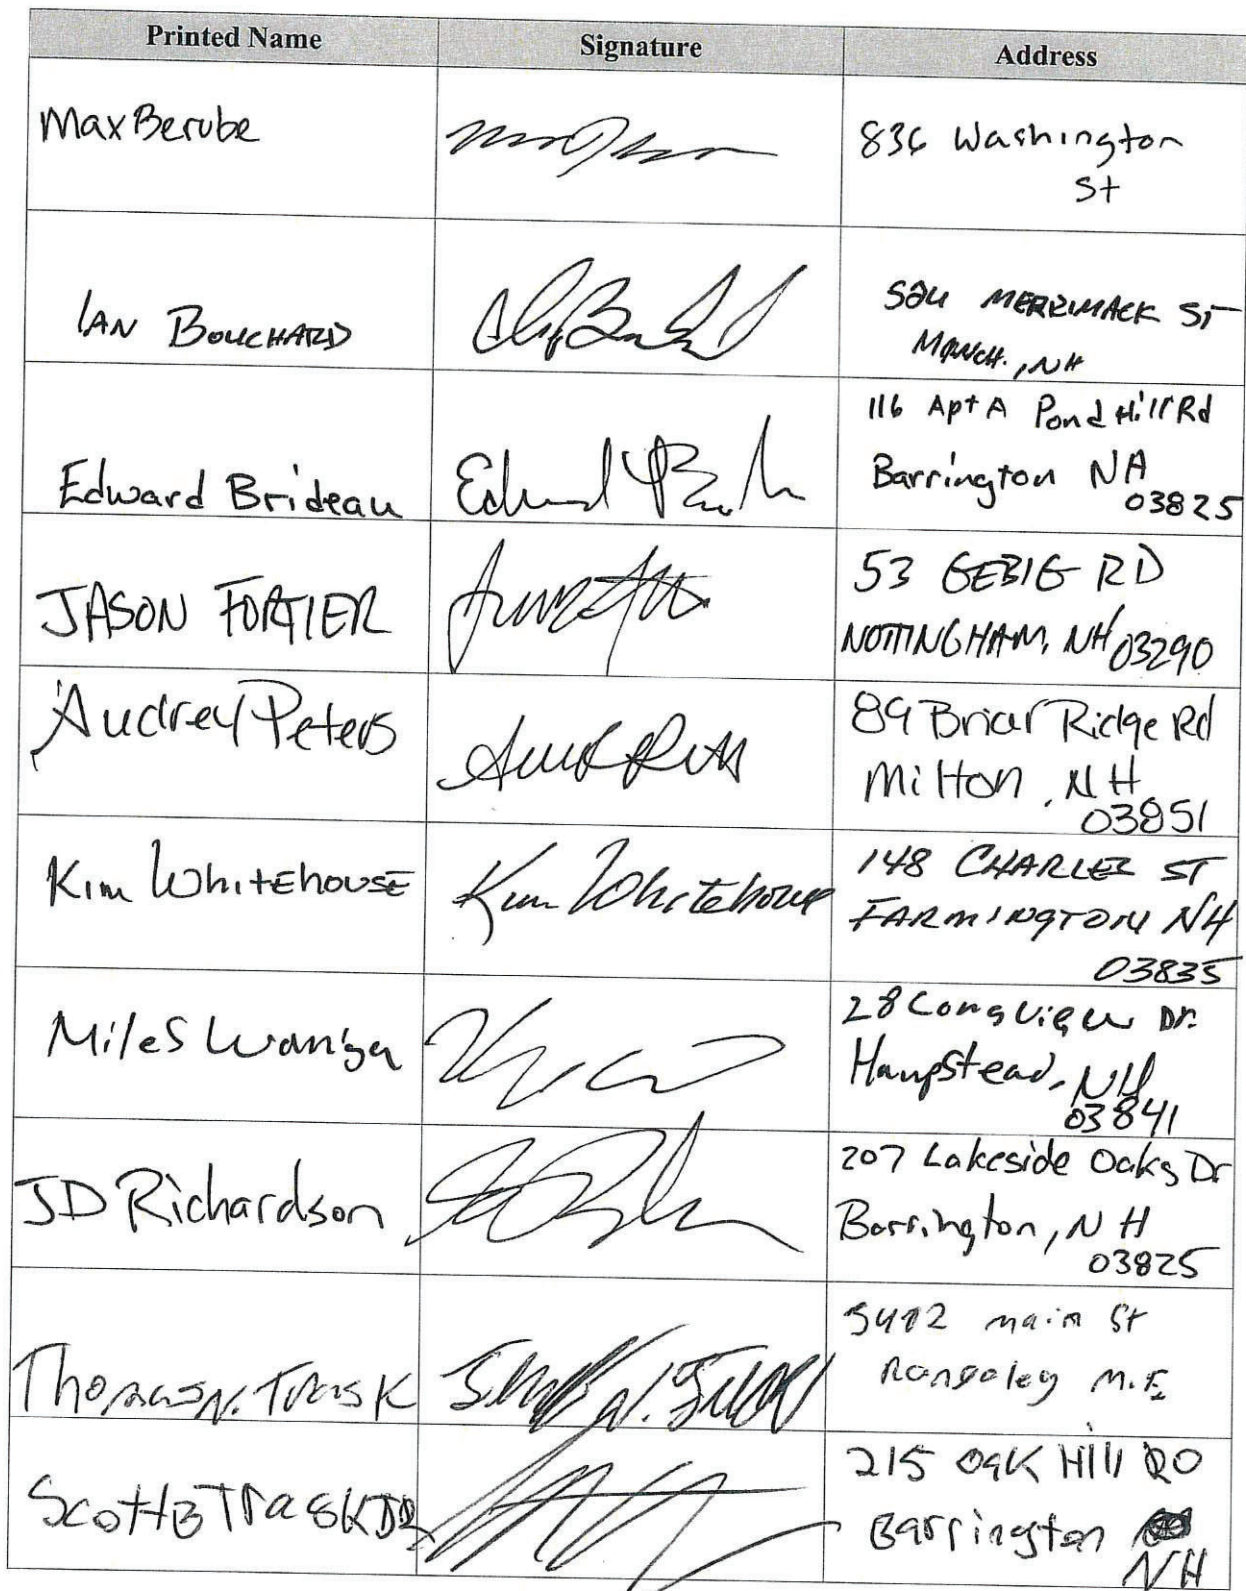 Printed Name Signature Address
Max Berube
836 Washington
St
IAN BOUCHARD
MERRIMACK ST
MANCH., NH
Edward Brideau
116 Apt A Pond Hill Rd
Barrington NA
03825
JASON FORTIER
53 GEBIG RD
NOTTINGHAM, NH 03290
Audrey Peters
89 Briar Ridge Rd
Milton, NH
03851
Kim Whitehouse Kim Whitehouse
148 CHARLES ST
FARMINGTON NH
03835
Miles
28 Longview Dr.
Hampstead, NH
03841
JD Richardson
207 Lakeside Oaks Dr
Barrington, NH
03825
Thomas N. Trask
main St
Rangeley M.E.
Scott B Trask JR
215 Oak Hill RD
Barrington
NH